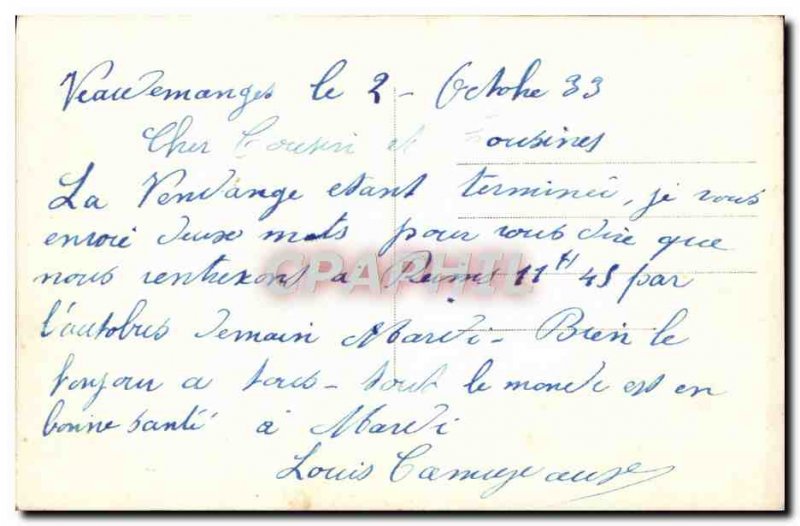 Veaudemanges le 2 - Octobre 33
Cher Cousin et Cousines
La Vendange etant terminée, je vous
envoie deux mots pour vous dire que
nous rentrerons a Reims 11 H 45 par
l'autobus demain Mardi - Bien le
bonjour a tous - tout le monde est en
bonne santé à Mardi
Louis
CPAPHIL